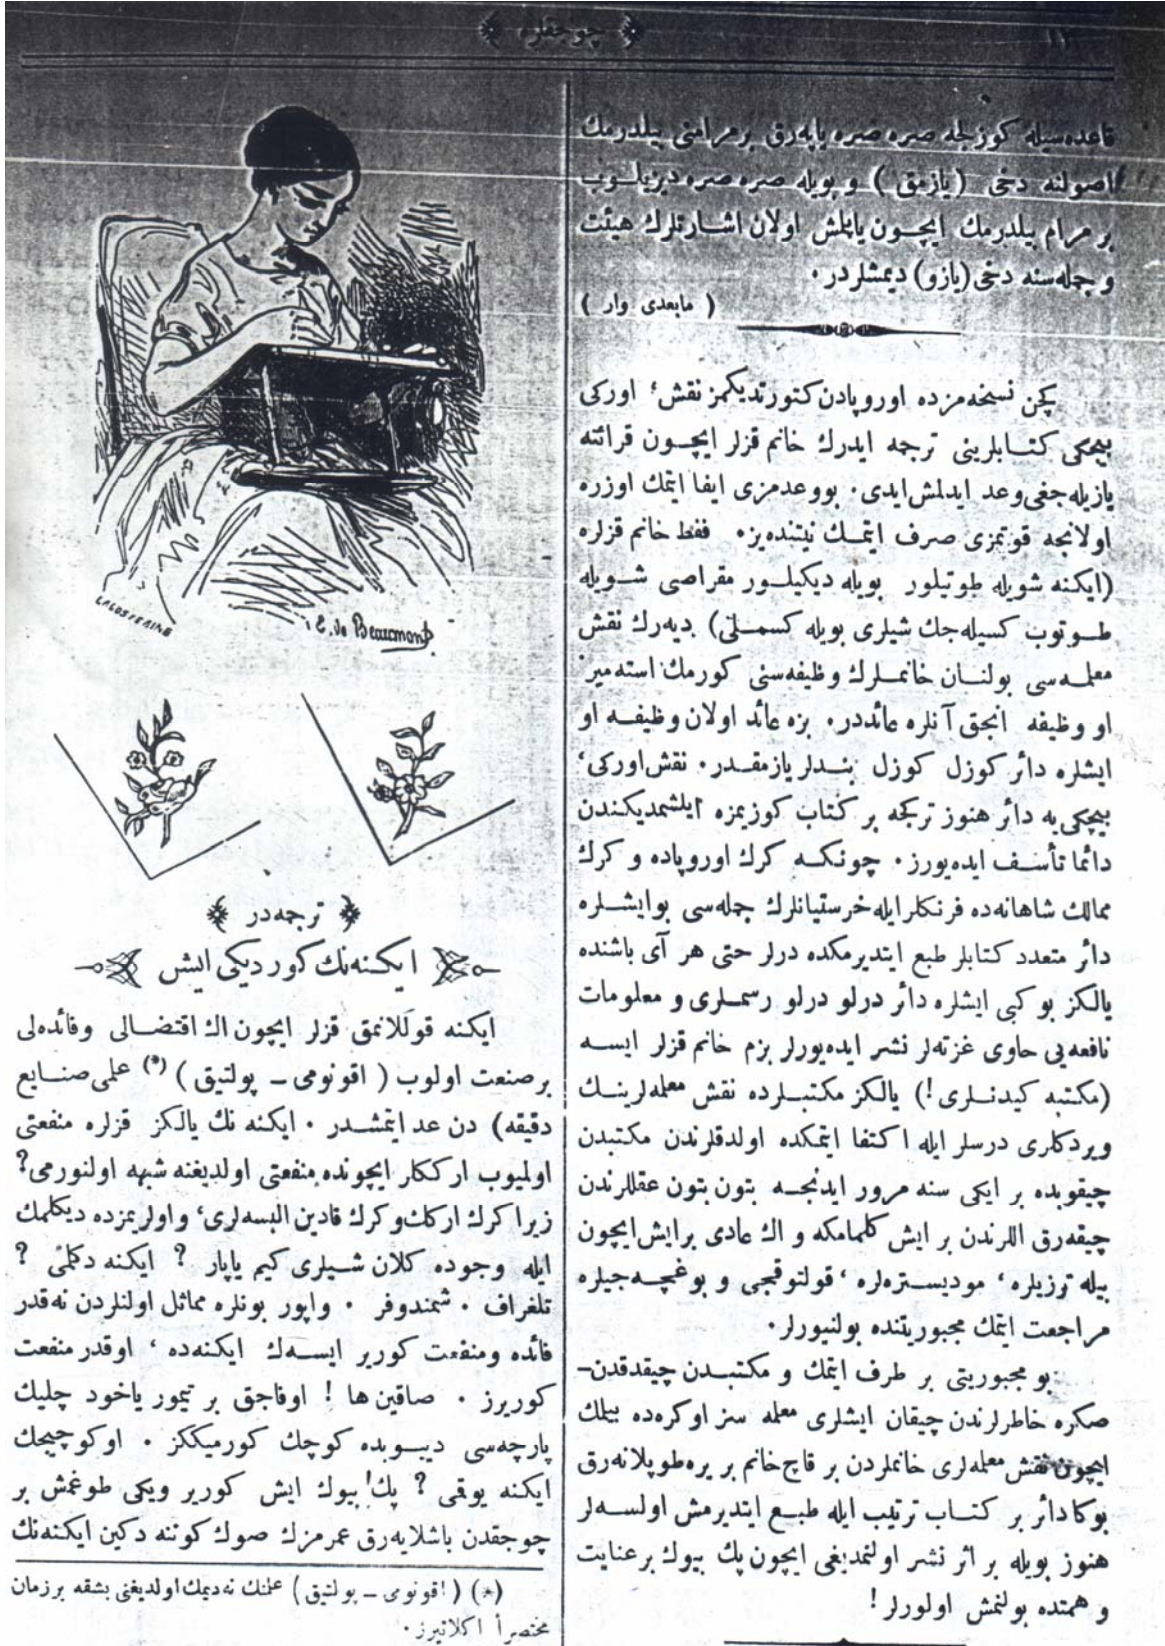 ١٢
﴿ چوجقلره ﴾
قاعده‌سیله كوزجله صره صره یاپه‌رق بر مرامنی بیلدرمك
اصولنه دخی (یازمق) و بویله صره صره دیزیلوب
بر مرام بیلدرمك ایچون یاپلمش اولان اشارتلرك هیئت
و جمله‌سنه دخی (یازو) دیمشلردر.
( مابعدی وار )
كچن نسخه‌مزده اوروپادن كتورتدیكمز نقش، اوركی
بیچكی كتابلرینی ترجمه ایدرك خانم قزلر ایچون قرائته
یازیله‌جغی وعد ایدلمش ایدی. بو وعدمزی ایفا ایتمك اوزره
اولانجه قوتمزی صرف ایتمك نیتنده‌یز. فقط خانم قزلره
(ایكنه شویله طوتیلور بویله دیكیلور مقراصی شویله
طوتوب كسیله‌جك شیلری بویله كسملی) دیه‌رك نقش
معلمه‌سی بولنان خانملرك وظیفه‌سنی كورمك استه‌میز
او وظیفه انجق آنلره عائددر. بزه عائد اولان وظیفه او
ایشلره دائر كوزل كوزل بندلر یازمقدر. نقش اوركی،
بیچكی‌یه دائر هنوز تركجه بر كتاب كوزیمزه ایلشمدیكندن
دائما تأسف ایده‌یورز. چونكه كرك اوروپاده و كرك
ممالك شاهانه‌ده فرنكلر ایله خرستیانلرك جمله‌سی بو ایشلره
دائر متعدد كتابلر طبع ایتدیرمكده درلر حتی هر آی باشنده
یالكز بو كبی ایشلره دائر درلو درلو رسملری و معلومات
نافعه‌یی حاوی غزته‌لر نشر ایده‌یورلر بزم خانم قزلر ایسه
(مكتبه كیدنلری!) یالكز مكتبلرده نقش معلمه‌لرینك
ویردكلری درسلر ایله اكتفا ایتمكده اولدقلرندن مكتبدن
چیقوبده بر ایكی سنه مرور ایدنجه بتون بتون عقللرندن
چیقه‌رق اللرندن بر ایش كلمامكه و اك عادی بر ایش ایچون
بیله ترزیلره، مودیستره‌لره، قولتوقجی و بوغچه‌جیلره
مراجعت ایتمك مجبوریتنده بولنیورلر.
بو مجبوریتی بر طرف ایتمك و مكتبدن چیقدقدن-
صكره خاطرلرندن چیقان ایشلری معلمه سز اوكره‌ده بیلمك
ایچون نقش معلمه‌لری خانملردن بر قاچ خانم بر یره طوپلانه‌رق
بوكا دائر بر كتاب ترتیب ایله طبع ایتدیرمش اولسه‌لر
هنوز بویله بر اثر نشر اولنمدیغی ایچون پك بیوك بر عنایت
و همتده بولنمش اولورلر!
E. de Beaumont
﴿ ترجمه‌در ﴾
ایكنه‌نك كوردیكی ایش
ایكنه قوللانمق قزلر ایچون اك اقتضالی وفائده‌لی
بر صنعت اولوب ( اقونومی ـ پولتیق ) (*) علمی صنایع
دقیقه) دن عد ایتمشدر. ایكنه نك یالكز قزلره منفعتی
اولمیوب ارككلر ایچونده منفعتی اولدیغنه شبهه اولنورمی؟
زیرا كرك ارككـ و كرك قادین البسه‌لری، و اولریمزده دیكلمك
ایله وجوده كلان شیلری كیم یاپار ؟ ایكنه دكلمی ؟
تلغراف . شمندوفر . واپور بونلره مماثل اولنلردن نه‌قدر
فائده ومنفعت كوریر ایسه‌ك ایكنه‌ده ، اوقدر منفعت
كوریرز . صاقین ها ! اوفاجق بر تیمور یاخود چلیك
پارچه‌سی دییوبده كوچك كورمیكز . او كوچیجك
ایكنه یوقمی ؟ پك! بیوك ایش كوریر ویكی طوغمش بر
چوجقدن باشلایه‌رق عمرمزك صوك كوننه دكین ایكنه‌نك
(*) ( اقونومی ـ پولتیق ) علمنك نه‌دیمك اولدیغنی بشقه بر زمان
مختصراً اكلاتیرز .